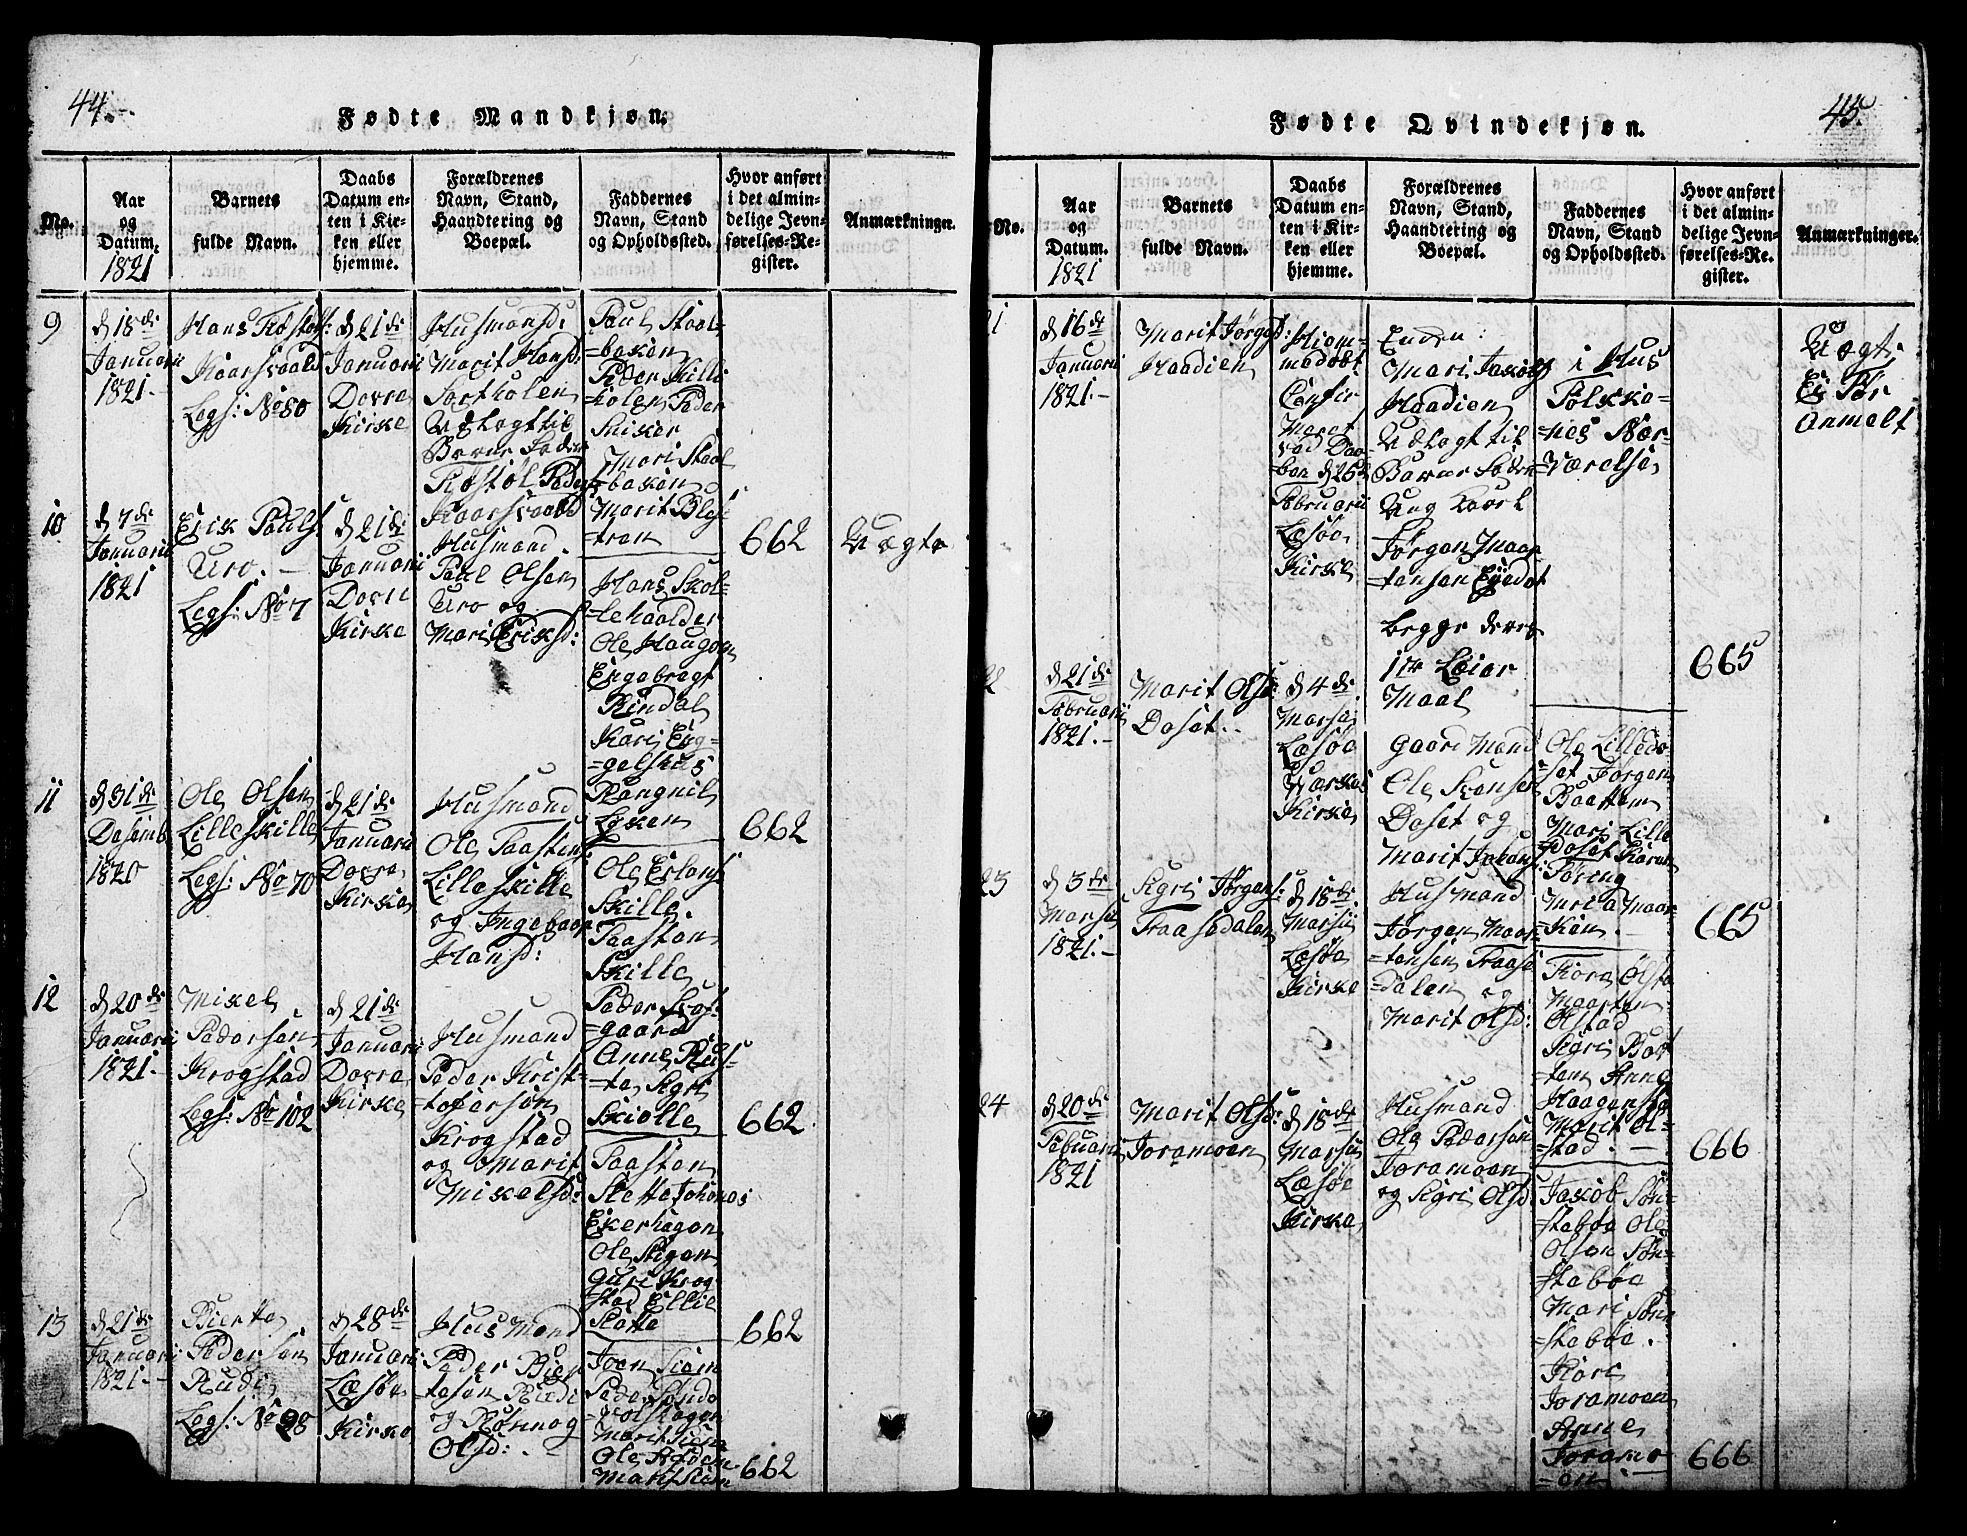 44.
Fødte Mandkjøn.
No.
Aar
og
Datum.
1821
Barnets
fulde Navn.
Daabs
Datum en-
ten i Kir-
ken eller
hjemme.
Forældrenes
Navn, Stand,
Haandtering og
Boepæl.
Faddernes
Navn, Stand
og Opholdssted.
Hvor anført
i det almin-
delige Jevn-
førelses-Re-
gister.
Anmærkninger.
9
d 18de
Januarii
1821.-
Hans
Kaarsvaald
Legs: No 80
d 21de
Januarii
Dovre
Kirke
Husmansd:
Marit Hansd:
Udlagt til
Kaarsvaald
Paul Staal-
=baken
Peder Killi
holen Peder
Sniker
Mari Staal
=baken
Marit
662
Uægte
10
d 7de
Januarii
1821
Erik Paulsf
Uro. -
Legs: No 7
d 21de
Januarii
Dovre
Kirke
Husmand
Paul Olsen
Uro og
Mari Eriksd:
Hans Skol-
=lehaalder
Ole Haugen
Engebregt
Rindal
Kari Eng-
=gelshus
Rangnil
Løken
662
11
d 31de
Desemb
1820
Ole Olsen
Lilleskille
Legs: No 70
d 21de
Januarii
Dovre
Kirke
Husmand
Ole Taasten
Lilleskille
og Ingebaar
Hansd:
Ole Erlans
Skille.
Taasten
Skille
Peder
=gaard
Anne
Sigri
Skiølle
662
12
d 20de
Januarii
1821.-
Mikel
Pedersen
Krogstad
Legs: No 102
d 21de
Januarii
Dovre
Kirke
Husmand
Peder Krist-
=tofersøn
Krogstad
og Marit
Mikelsd:
Taasten
Slette Johanes
Ekerhagen
Ole Stigen
Guri Krog-
stad Ellie
Slette
662
13
d 21de
Januarii
1821.-
Bierte
Pedersen
Rudi
Legs: No 98
d 28de
Januarii
Læsøe
Kirke
Husmand
Peder Bier
=tesen Rudi
og Rønnog
Olsd: . -
Joen
Peder
Marit
Ole
Marit
662
45.
Fødte Qvindekjøn.
No.
Aar
og
Datum.
1821
Barnets
fulde Navn.
Daabs
Datum en-
ten i Kir-
ken eller
hjemme.
Forældrenes
Navn, Stand,
Haandtering og
Boepæl.
Faddernes
Navn, Stand
og Opholdssted.
Hvor anført
i det almin-
delige Jevn-
førelses-Re-
gister.
Anmærkninger.
21
d 16de
Januarii
1821.-
Marit Jørgsd:
Haadien
Hiem-
medøbt
Confir
Meret
ved Daa-
ben d 25de
Februarii
Læsøe
Kirke
Enden:
Mari Jakobsd
Haadien
Udlagt til
Ung Karl
Jørgen Maar
=tensen
begge deres
1ste Leier
Maal
i Hus
Folkke-
=nes Nær-
=værelse
665
Uægte
Ei Før
Anmelt
22
d 21de
Februarii
1821.-
Marit Olsd:
Doset.
d 4de
Marsii
Læsøe
Værkes
Kirke
Gaard Mand
Ole
Doset og
Marit
Ole Lilledo
set Jørgen
Baattem
Mari Lille
=doset Karen
=ken.
665
23
d 3te
Marsii
1821.-
Sigri Jørgens:
Traasedalen
d 18de
Marsii
Læsøe
Kirke
Husmand
Jørgen Maar-
=tensen Traase
=dalen og
Marit Olsd:
Tore
Maarten
Olstad
Sigri Bort
tem Anne
Haagensta
Marit Ol-
=stad. -
666
24
d 20de
Februarii
1821
Marit Olsd:
Joramoen
d 18de
Marsii
Læsøe
Kirke
Husmand
Ole Pedersen
Joramoen
og Sigri Olsd:
Jakob Søn-
=stebøe Ole
Olsen Søn-
=stebøe
Mari Søn
=stebøe.
Kari
Joramoen
Anne
Joramo-
=en
666